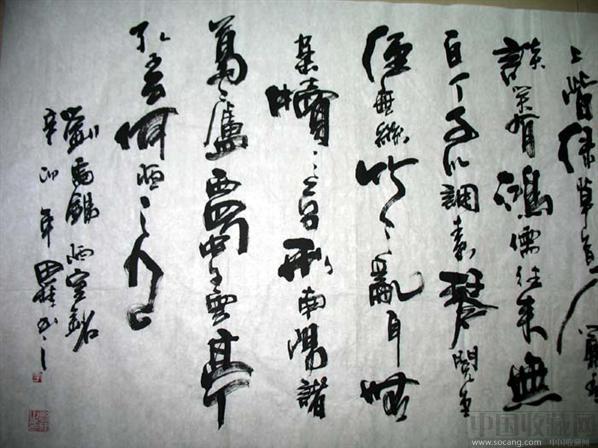 階綠草色入簾青
談笑有鴻儒往来無
白丁可以調素琴閱金
經無絲竹之亂耳無
案牘之勞形南陽諸
葛之廬西蜀子雲亭
孔云何陋之有
劉禹錫陋室銘
辛卯年田書之
中国收藏网
www.socang.com 中国收藏网